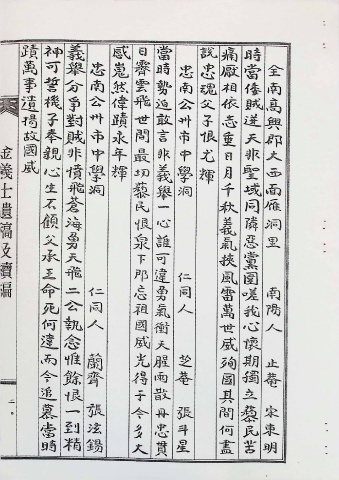 全南高興郡大西面雁洞里　南陽人　止菴　宋東明
時當倭賊逆天非聖域同隣惡黨國嗟我心懷期獨立黎民苦
痛厥相依志重日月千秋義氣挾風雷萬世威殉國其間何盡
說忠魂父子恨尤輝
忠南公州市中學洞　仁同人　芝菴　張斗星
當時勢迫敢言非義舉一心誰可違勇氣衝天腥雨散丹忠貫
日霽雲飛世間最切黎民恨泉下那忘祖國威光得于今多丈
感嵬然偉蹟永年輝
忠南公州市中學洞　仁同人　蘭齊　張法錫
義舉分爭對賊非憤飛蒼海勇天飛二公執念惟餘恨一到精
神可誓機子奉親心生不顧父承王命死何違而今追慕當時
蹟萬事遺揚政國威
金義士遺稿及續編